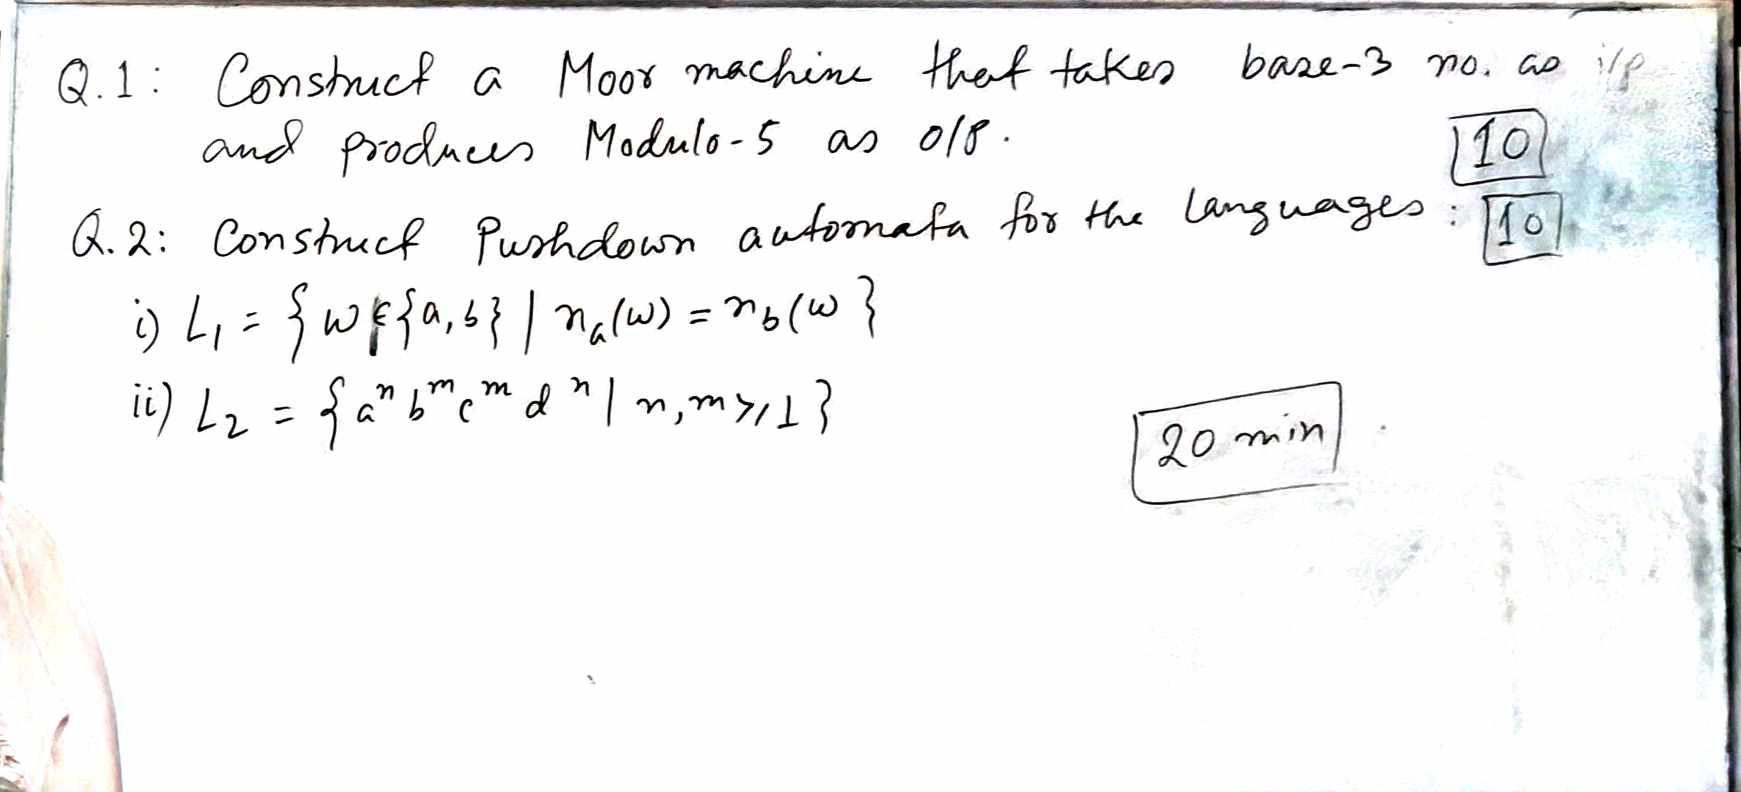 Q.1: Construct a Moor machine that takes base-3 no. as i/p
and produces Modulo-5 as o/p.
10
Q.2: Construct Pushdown automata for the languages: 10
i) L₁ = { w ∈ {a,b} | nₐ(w) = n_b(w }
ii) L₂ = { aⁿ bᵐ cᵐ dⁿ | n, m ≥ 1 }
20 min